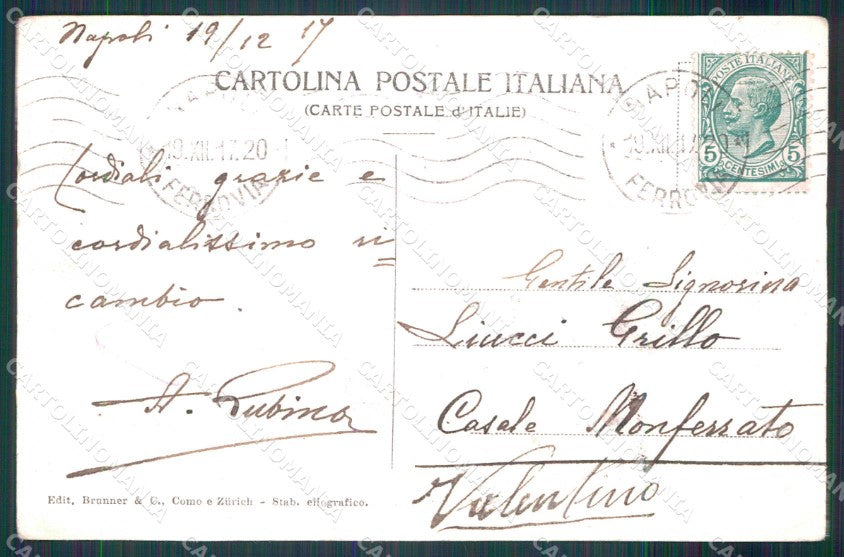 Napoli 19/12 17
CARTOLINA POSTALE ITALIANA
(CARTE POSTALE d'ITALIE)
NAPOLI
19.XII.17.20
FERROVIA
NAPOLI
19.XII.17.20
FERROVIA
POSTE ITALIANE
5 5
CENTESIMI
Cordiali grazie e
cordialissimo ri=
cambio.
A. Rubino
Gentile Signorina
Liucci Grillo
Casale Monferrato
Valentino
Edit. Brunner & C., Como e Zürich - Stab. eliografico.
CARTOLINOMANIA